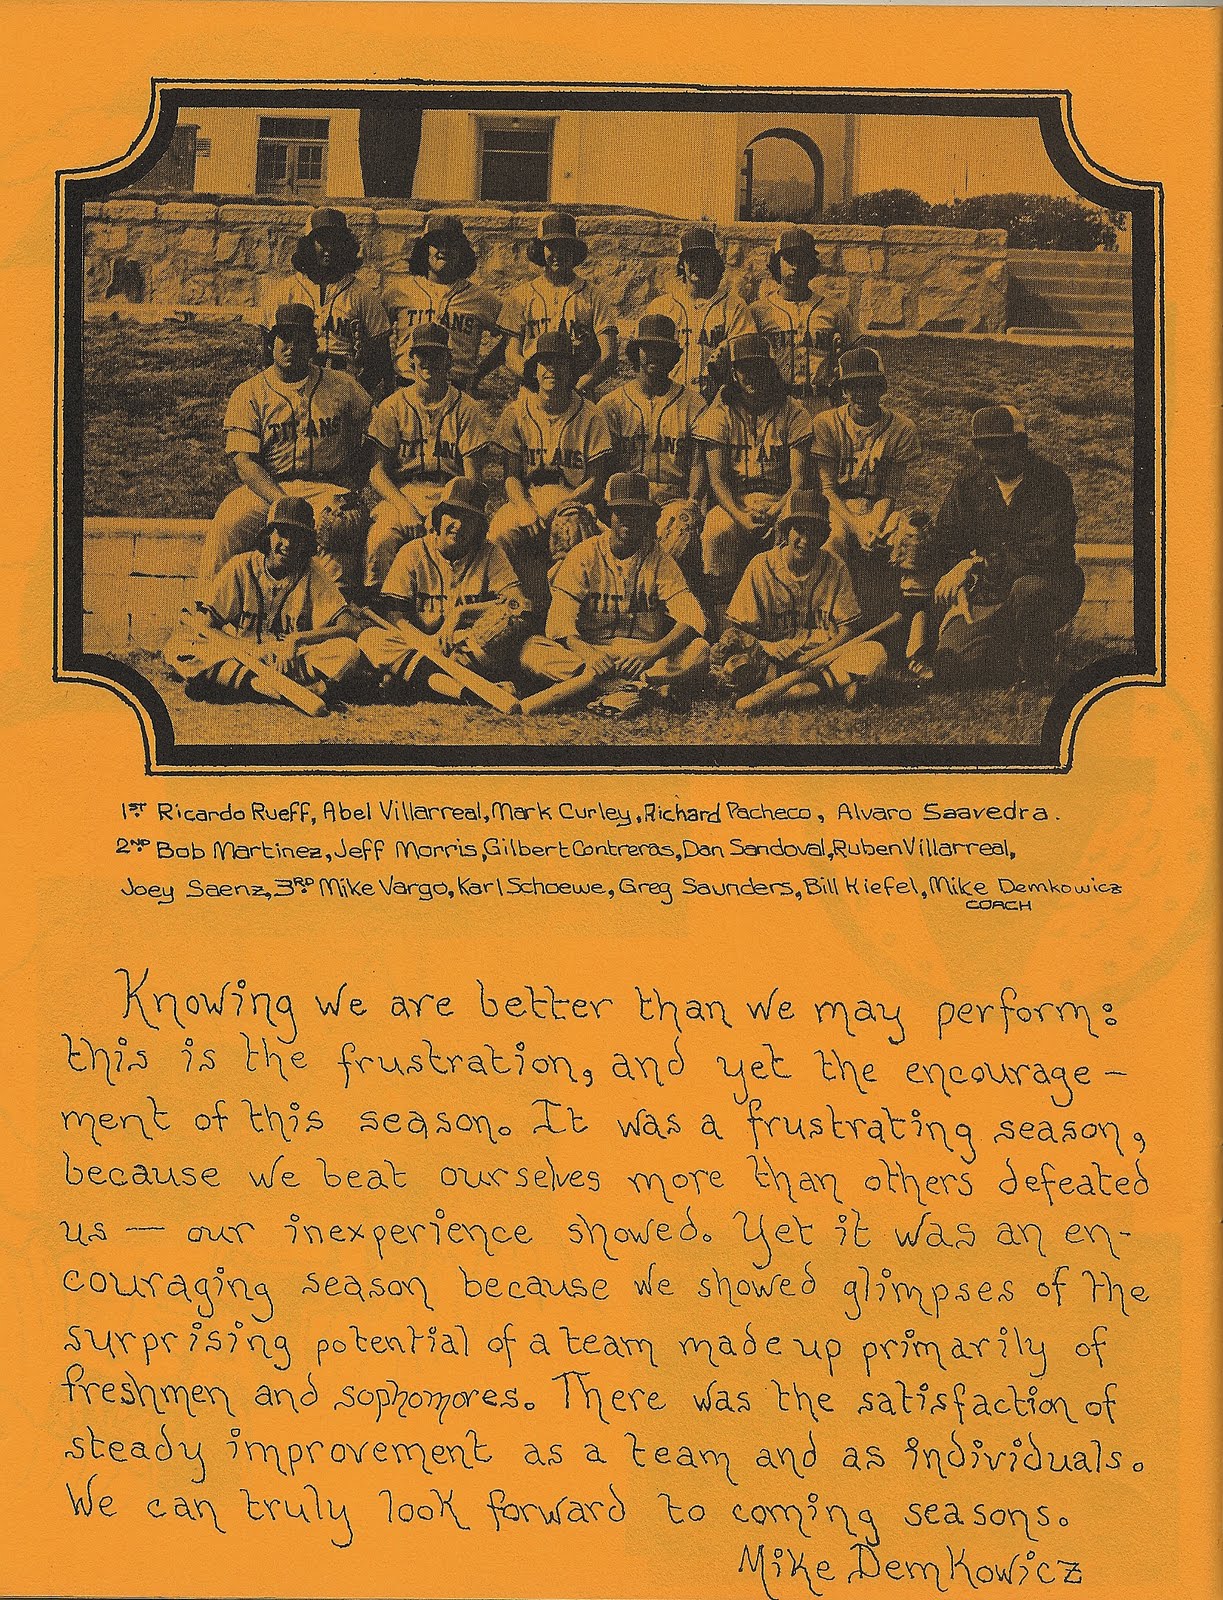 TITANS
TITANS
TITANS
TITANS
TITANS
TITANS
TITANS
TITANS
TITANS
TITANS
TITANS
TITANS
TITANS
1ST Ricardo Rueff, Abel Villarreal, Mark Curley, Richard Pacheco, Alvaro Saavedra.
2ND Bob Martinez, Jeff Morris, Gilbert Contreras, Dan Sandoval, Ruben Villarreal,
Joey Saenz, 3RD Mike Vargo, Karl Schoewe, Greg Saunders, Bill Kiefel, Mike Demkowicz
COACH
Knowing we are better than we may perform:
this is the frustration, and yet the encourage-
ment of this season. It was a frustrating season,
because we beat ourselves more than others defeated
us — our inexperience showed. Yet it was an en-
couraging season because we showed glimpses of the
surprising potential of a team made up primarily of
freshmen and sophomores. There was the satisfaction of
steady improvement as a team and as individuals.
We can truly look forward to coming seasons.
Mike Demkowicz